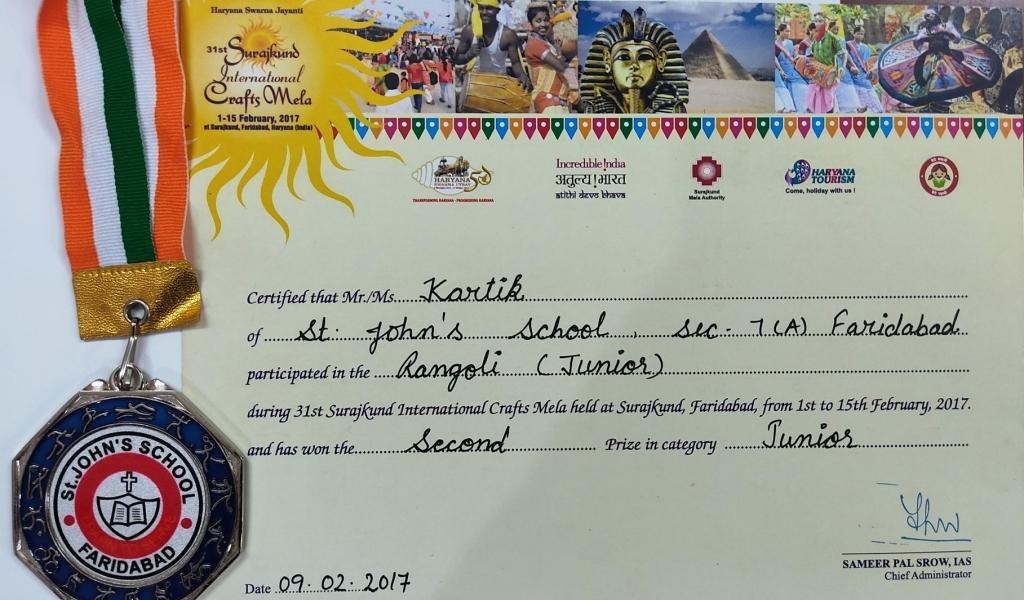 Haryana Swarna Jayanti
31st Surajkund
International
Crafts Mela
1-15 February, 2017
at Surajkund, Faridabad, Haryana (India)
HARYANA
SWARNA UTSAV
50
TRANSFORMING HARYANA - PROGRESSING HARYANA
Incredible !ndia
अतुल्य ! भारत
atithi devo bhava
Surajkund
Mela Authority
HARYANA
TOURISM
Come, holiday with us !
Certified that Mr./Ms. Kartik
of St. John's School, Sec- 7(A) Faridabad
participated in the Rangoli (Junior)
during 31st Surajkund International Crafts Mela held at Surajkund, Faridabad, from 1st to 15th February, 2017.
and has won the Second Prize in category Junior
SAMEER PAL SROW, IAS
Chief Administrator
Date 09.02.2017
St. JOHN'S SCHOOL
FARIDABAD